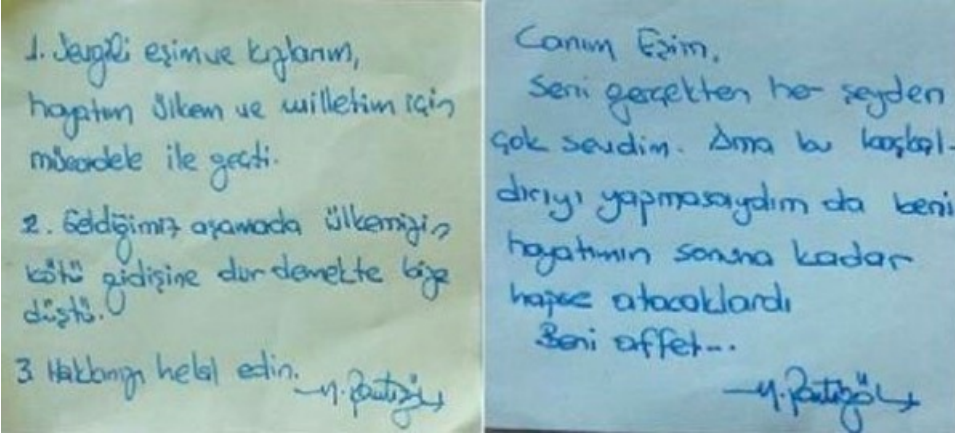 1. Sevgili eşim ve kızlarım,
hayatım ülkem ve milletim için
mücadele ile geçti.
2. Geldiğimiz aşamada ülkemizin
kötü gidişine dur demekte bize
düştü.
3 Hakkınızı helal edin.
Canım Eşim,
Seni gerçekten her şeyden
çok sevdim. Ama bu
yapmasaydım da beni
hayatımın sonuna kadar
hapse atacaklardı
Beni affet...